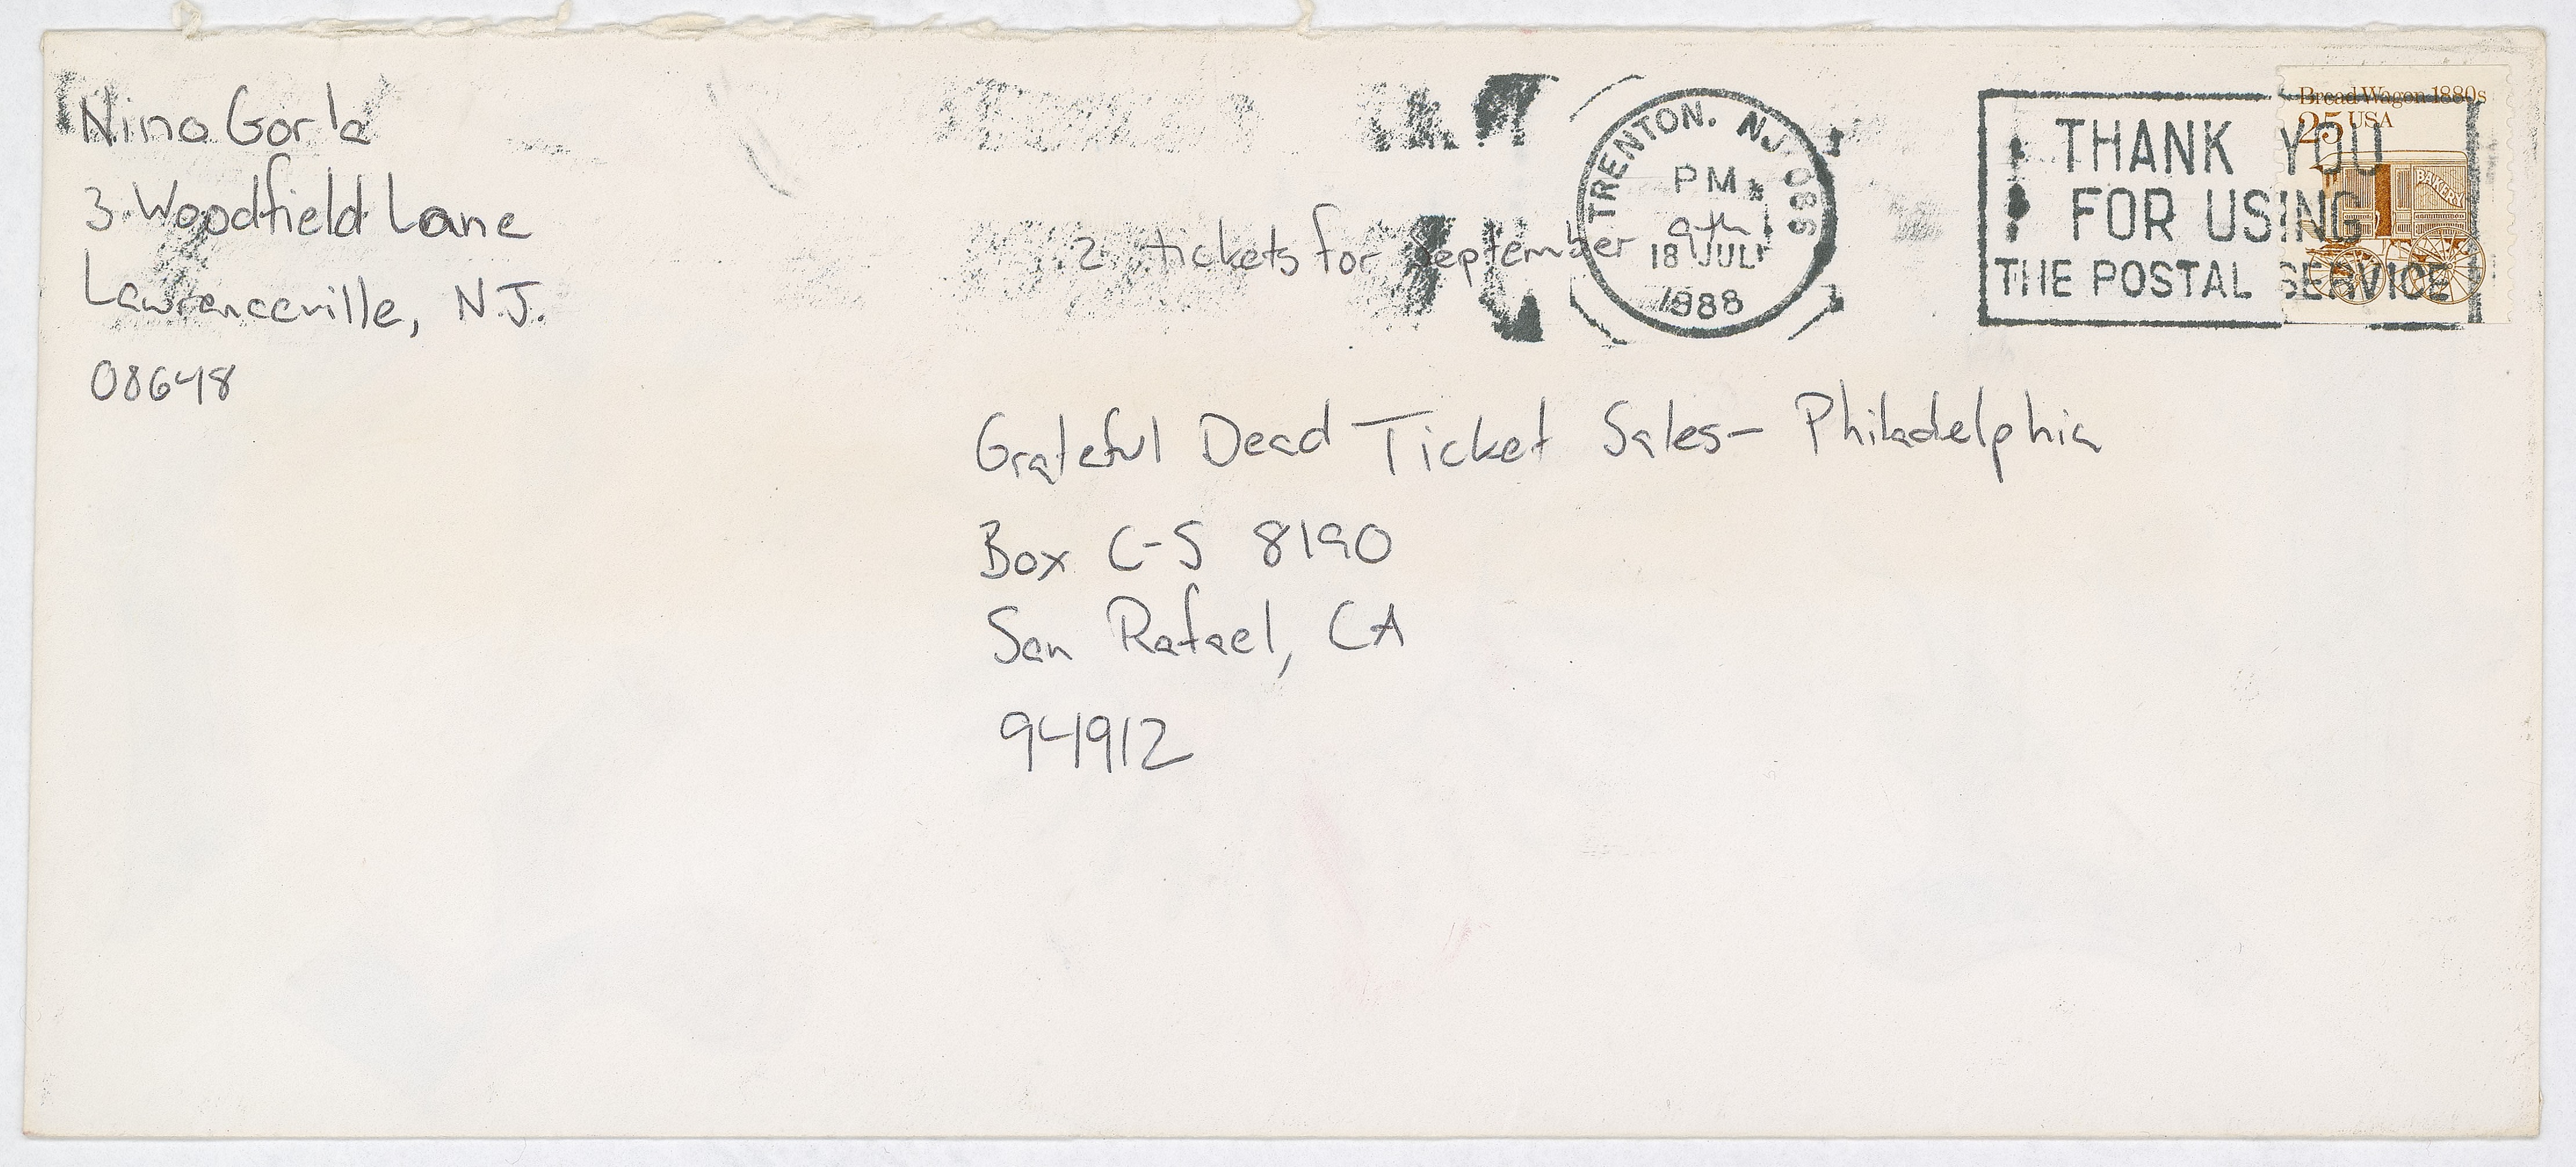 Nina Gorla
3 Woodfield Lane
Lawrenceville, N.J.
08648
2 tickets for September 9th
TRENTON. NJ 086
PM
18 JUL
1988
THANK YOU
FOR USING
THE POSTAL SERVICE
Bread Wagon 1880s
25 USA
BAKERY
Grateful Dead Ticket Sales- Philadelphia
Box C-S 8190
San Rafael, CA
94912